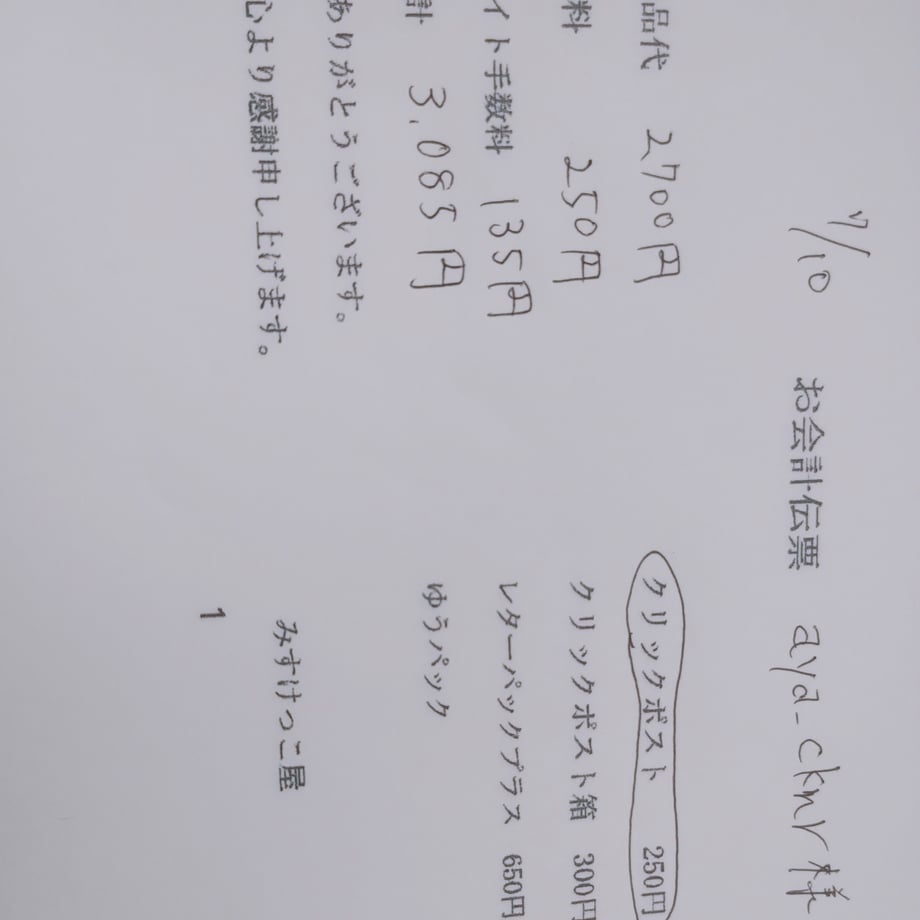 7/10 お会計伝票 aya_ckmr様
品代 2,700円 クリックポスト 250円
料 250円 クリックポスト箱 300円
イト手数料 135円 レターパックプラス 650円
計 3,085円 ゆうパック
ありがとうございます。
心より感謝申し上げます。 みすけっこ屋
1